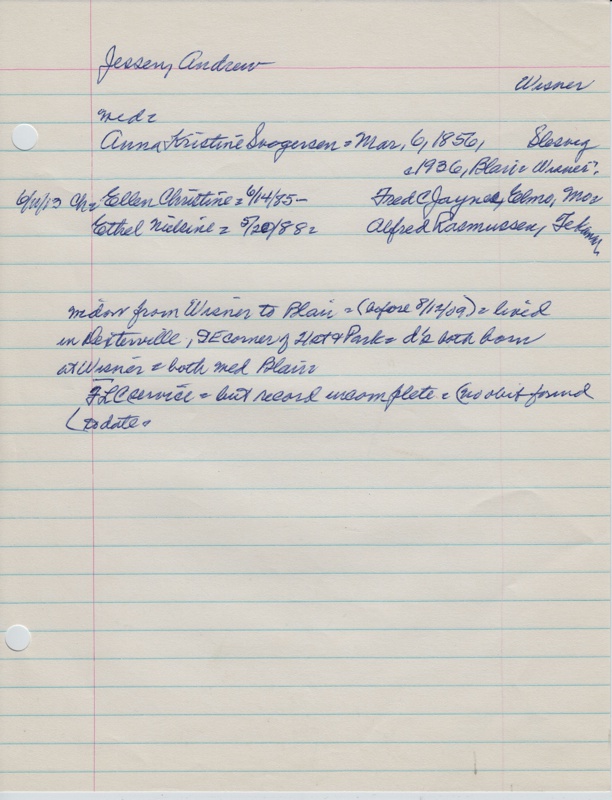 Jessen, Andrew
Wisner
med=
Anna Kristine Svogersen = Mar, 6, 1856, Slesvig
c1936, Blair= Wisner?
6/11/13 Ch= Ellen Christine = 6/14/85- Fred C Jaynes, Elmo, Mo=
Ethel Nielsine = 5/20/88= Alfred Rasmussen, Tekamah
widow from Wisner to Blair = (before 8/12/09) = lived
in Dexterville, SE corner of 21st & Park = d's both born
at Wisner = both med Blair=
FLC service = but record incomplete = (no obit found
(to date=